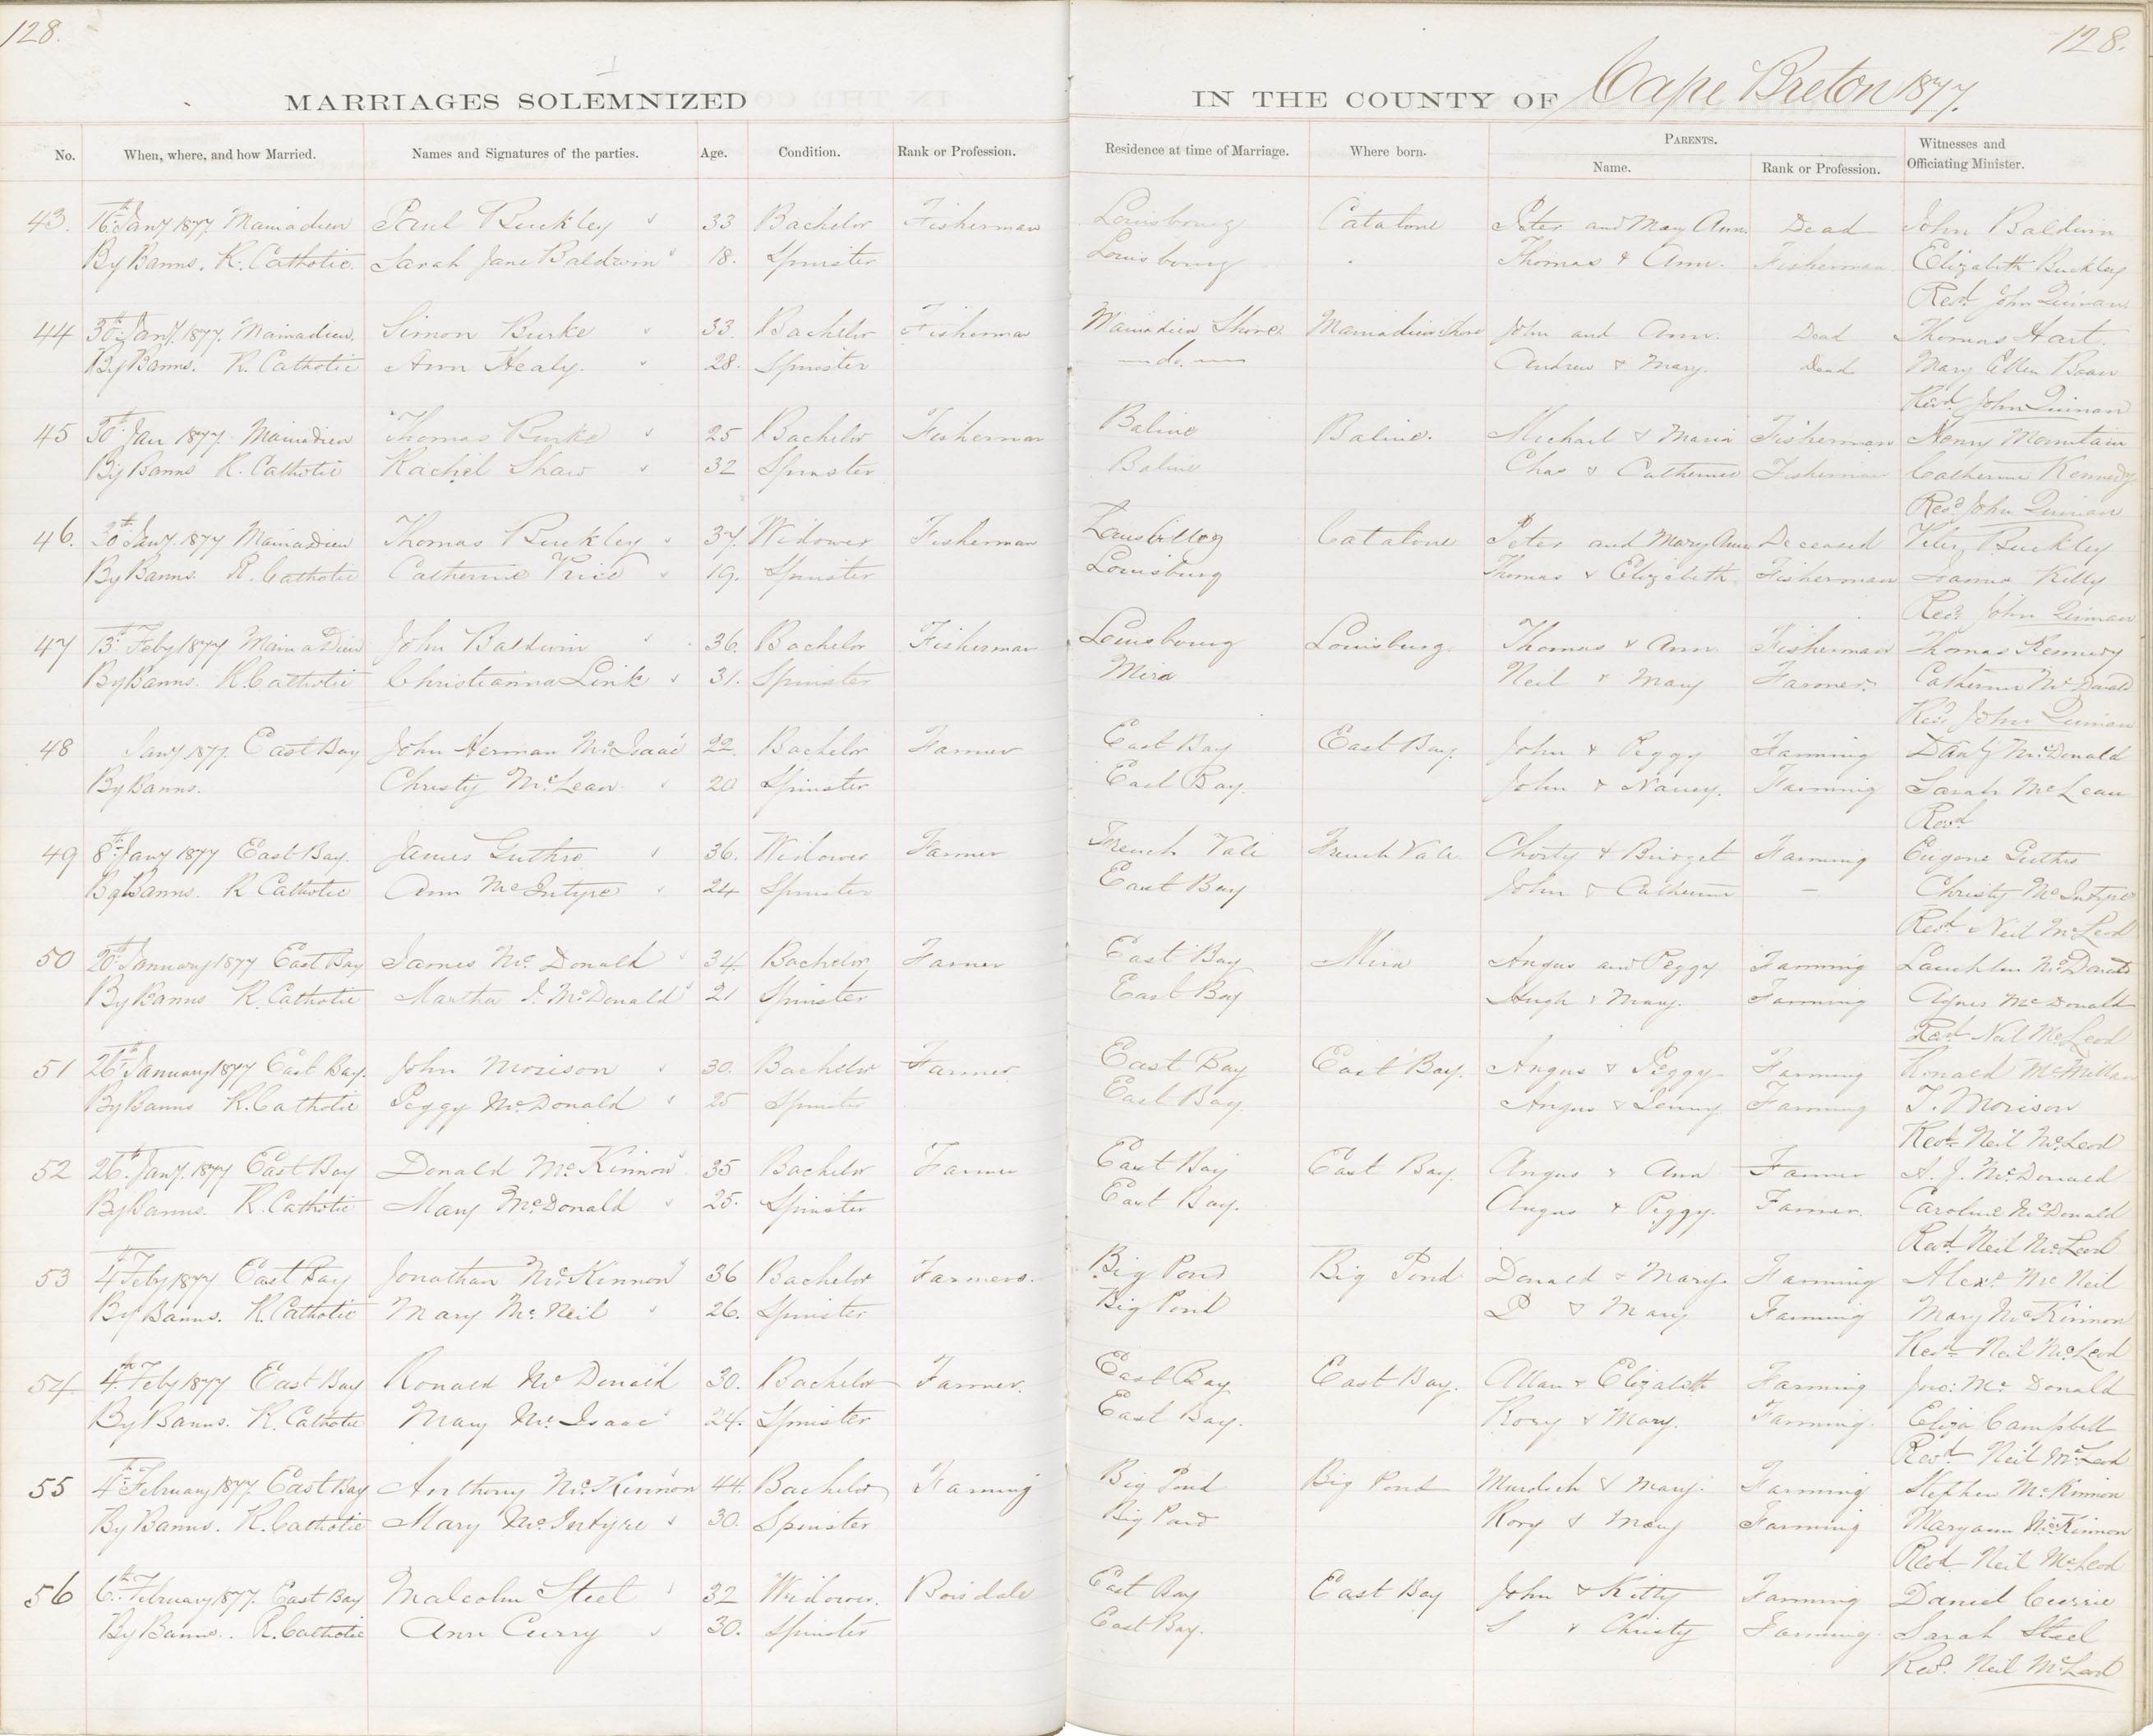 128.
128.
MARRIAGES SOLEMNIZED
IN THE COUNTY OF Cape Breton 1877.
No. When, where, and how Married. Names and Signatures of the parties. Age. Condition. Rank or Profession. Residence at time of Marriage. Where born. PARENTS. Name. Rank or Profession. Witnesses and Officiating Minister.
43. 16th Jany 1877 Mainadieu Paul Buckley 33 Bachelor Fisherman Louisbourg Catalone Peter and Mary Ann. Dead John Baldwin
By Banns. R. Catholic. Sarah Jane Baldwin 18. Spinster Louisbourg Thomas & Ann. Fisherman Elizabeth Buckley
Revd. John Quinan
44 30th Jany. 1877. Mainadieu. Simon Burke 33. Bachelor Fisherman Mainadieu Shore Mainadieu Shore John and Ann. Dead Thomas Hart.
By Banns. R. Catholic Ann Healy. 28. Spinster do. Andrew & Mary. Dead Mary Ellen
Revd. John Quinan
45 30th Jan 1877 Mainadieu Thomas Burke 25 Bachelor Fisherman Baline Baline. Michael & Maria Fisherman Henry Mountain
By Banns R. Catholic Rachel Shaw 32 Spinster Baline Chas & Catherine Fisherman Catherine Kennedy
Revd John Quinan
46. 30th Jany. 1877 Mainadieu Thomas Buckley 37. Widower Fisherman Catalone Peter and Mary Ann Deceased Peter Buckley
By Banns. R. Catholic Catherine Price 19. Spinster Louisburg Thomas & Elizabeth Fisherman Kelly
Revd. John Quinan
47 13th Feby 1877 Mainadieu John Baldwin 36. Bachelor Fisherman Louisbourg Louisburg. Thomas & Ann Fisherman Thomas Kennedy
By Banns. R. Catholic Christianna Link 31. Spinster Mira Neil & Mary Farmer. Catherine McDonald
Revd John Quinan
48 Jany 1877. East Bay John Herman McIsaac 22. Bachelor Farmer East Bay East Bay. John & Peggy Farming McDonald
By Banns. Christy McLean 20 Spinster East Bay. John & Nancy. Farming Sarah McLean
Revd
49 8th Jany 1877 East Bay. James Guthro 36. Widower Farmer French Vale French Vale Christy & Bridget Farming Eugene Guthro
By Banns. R Catholic Ann McIntyre 24 Spinster East Bay John & Catherine — Christy McIntyre
Revd. Neil McLeod
50 20th January 1877 East Bay James McDonald 34. Bachelor Farmer East Bay Mira Angus and Peggy Farming Lauchlin McDonald
By Banns R. Catholic Martha J. McDonald 21 Spinster East Bay Hugh & Mary. Farming Agnes McDonald
Revd. Neil McLeod
51 26th January 1877 East Bay. John Morison 30. Bachelor Farmer East Bay East Bay. Angus & Peggy Farming Ronald McMillan
By Banns R. Catholic Peggy McDonald 25 Spinster East Bay Angus & Jenny Farming T. Morison
Revd. Neil McLeod
52 26th Jany. 1877 East Bay Donald McKinnon 35 Bachelor Farmer East Bay East Bay. Angus & Ann Farmer A. J. McDonald
By Banns. R. Catholic Mary McDonald 25. Spinster East Bay. Angus & Peggy. Farmer. Caroline McDonald
Revd. Neil McLeod
53 4th Feby 1877 East Bay Jonathan McKinnon 36 Bachelor Farmers. Big Pond Big Pond Donald & Mary. Farming Alexr. McNeil
By Banns. R. Catholic Mary McNeil 26. Spinster Big Pond D & Mary Farming Mary McKinnon
Revd. Neil McLeod
54. 4th. Feby 1877 East Bay Ronald McDonald 30. Bachelor Farmer. East Bay East Bay. Allan & Elizabeth Farming Jno: McDonald
By Banns. R. Catholic Mary McIsaac 24. Spinster East Bay. Rory & Mary. Farming. Eliza Campbell
Revd. Neil McLeod
55 4th February 1877 East Bay Anthony McKinnon 44. Bachelor Farming Big Pond Big Pond Murdoch & Mary. Farming Stephen McKinnon
By Banns. R. Catholic Mary McIntyre 30. Spinster Big Pond Rory & Mary Farming Maryann McKinnon
Revd. Neil McLeod
56 6th February 1877. East Bay Malcolm Steel 32 Widower. Boisdale East Bay East Bay John & Kitty Farming Daniel Currie
By Banns. R. Catholic Ann Curry 30. Spinster East Bay. S & Christy Farming. Sarah Steel
Revd. Neil McLeod